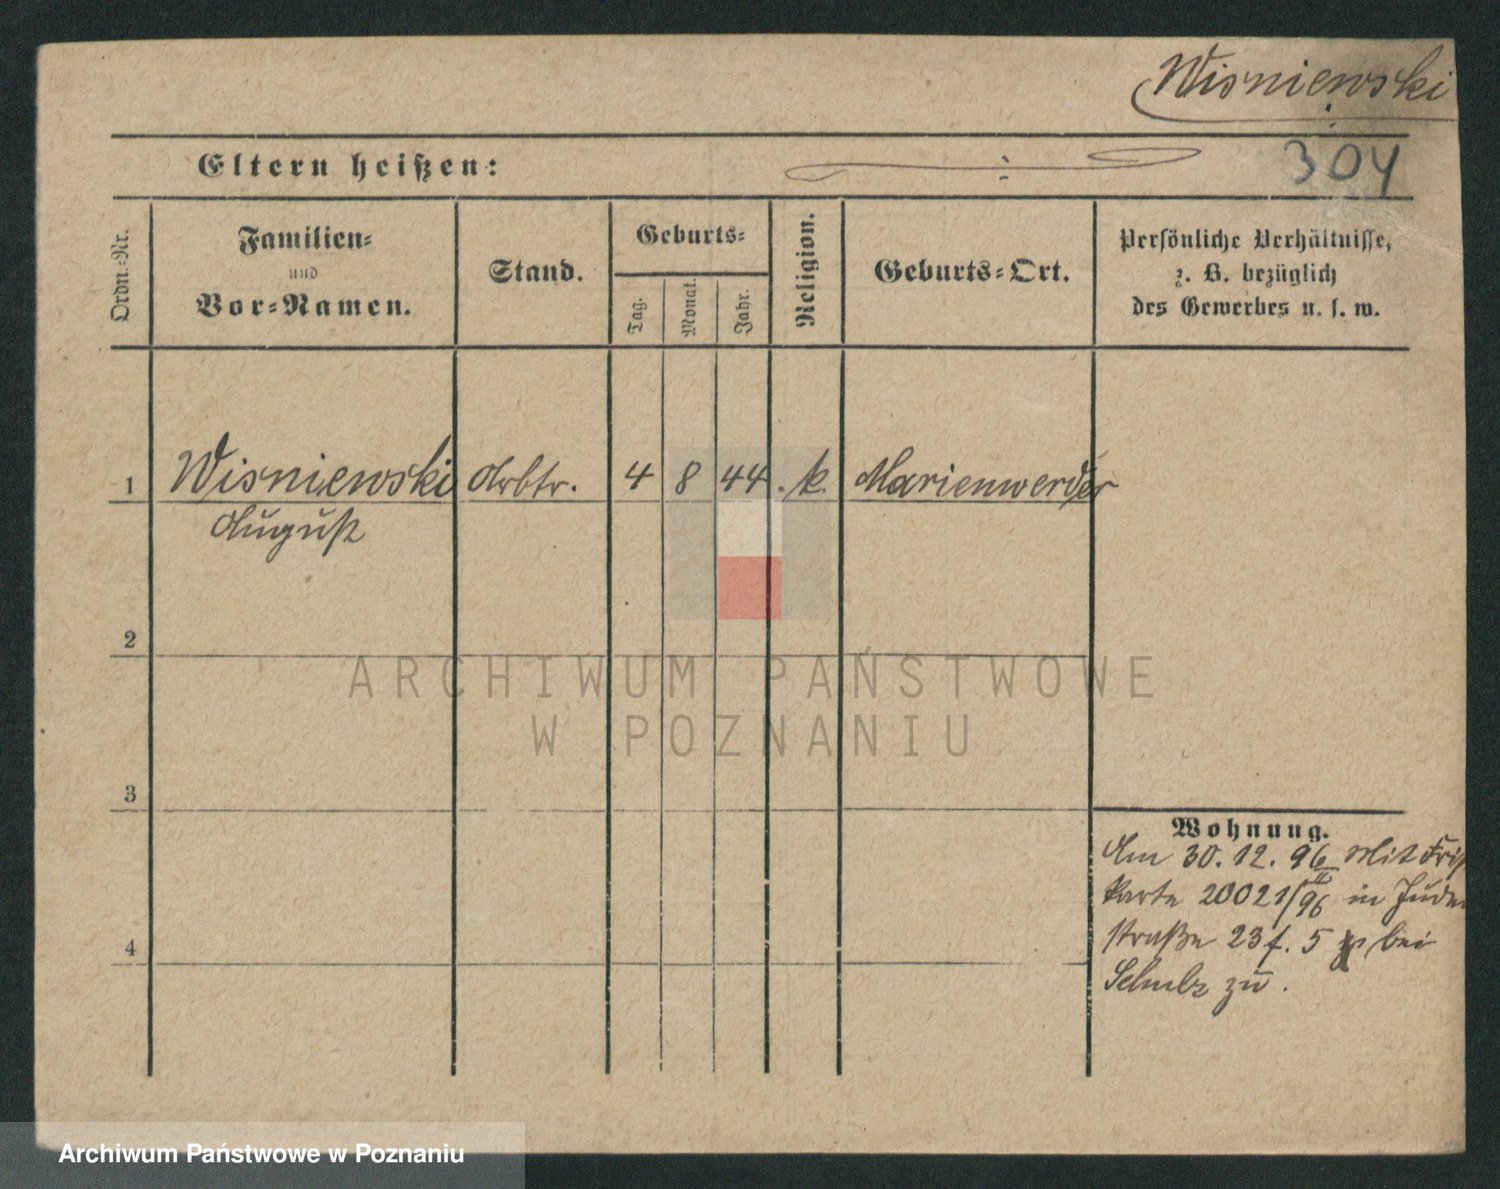 Wisniewski
304
Eltern heißen:
Ordn.-Nr.
Familien-
und
Vor-Namen.
Stand.
Geburts-
Tag.
Monat.
Jahr.
Religion.
Geburts-Ort.
Persönliche Verhältnisse,
z. B. bezüglich
des Gewerbes u. s. w.
1 Wisniewski Arbtr. 4 8 44. k. Marienwerder
August
2
3
4
Wohnung.
Am 30. 12. 96 mit
karte 20021/96 in Juden
straße 23 f. 5 bei
Schulz zu.
ARCHIWUM PAŃSTWOWE
W POZNANIU
Archiwum Państwowe w Poznaniu